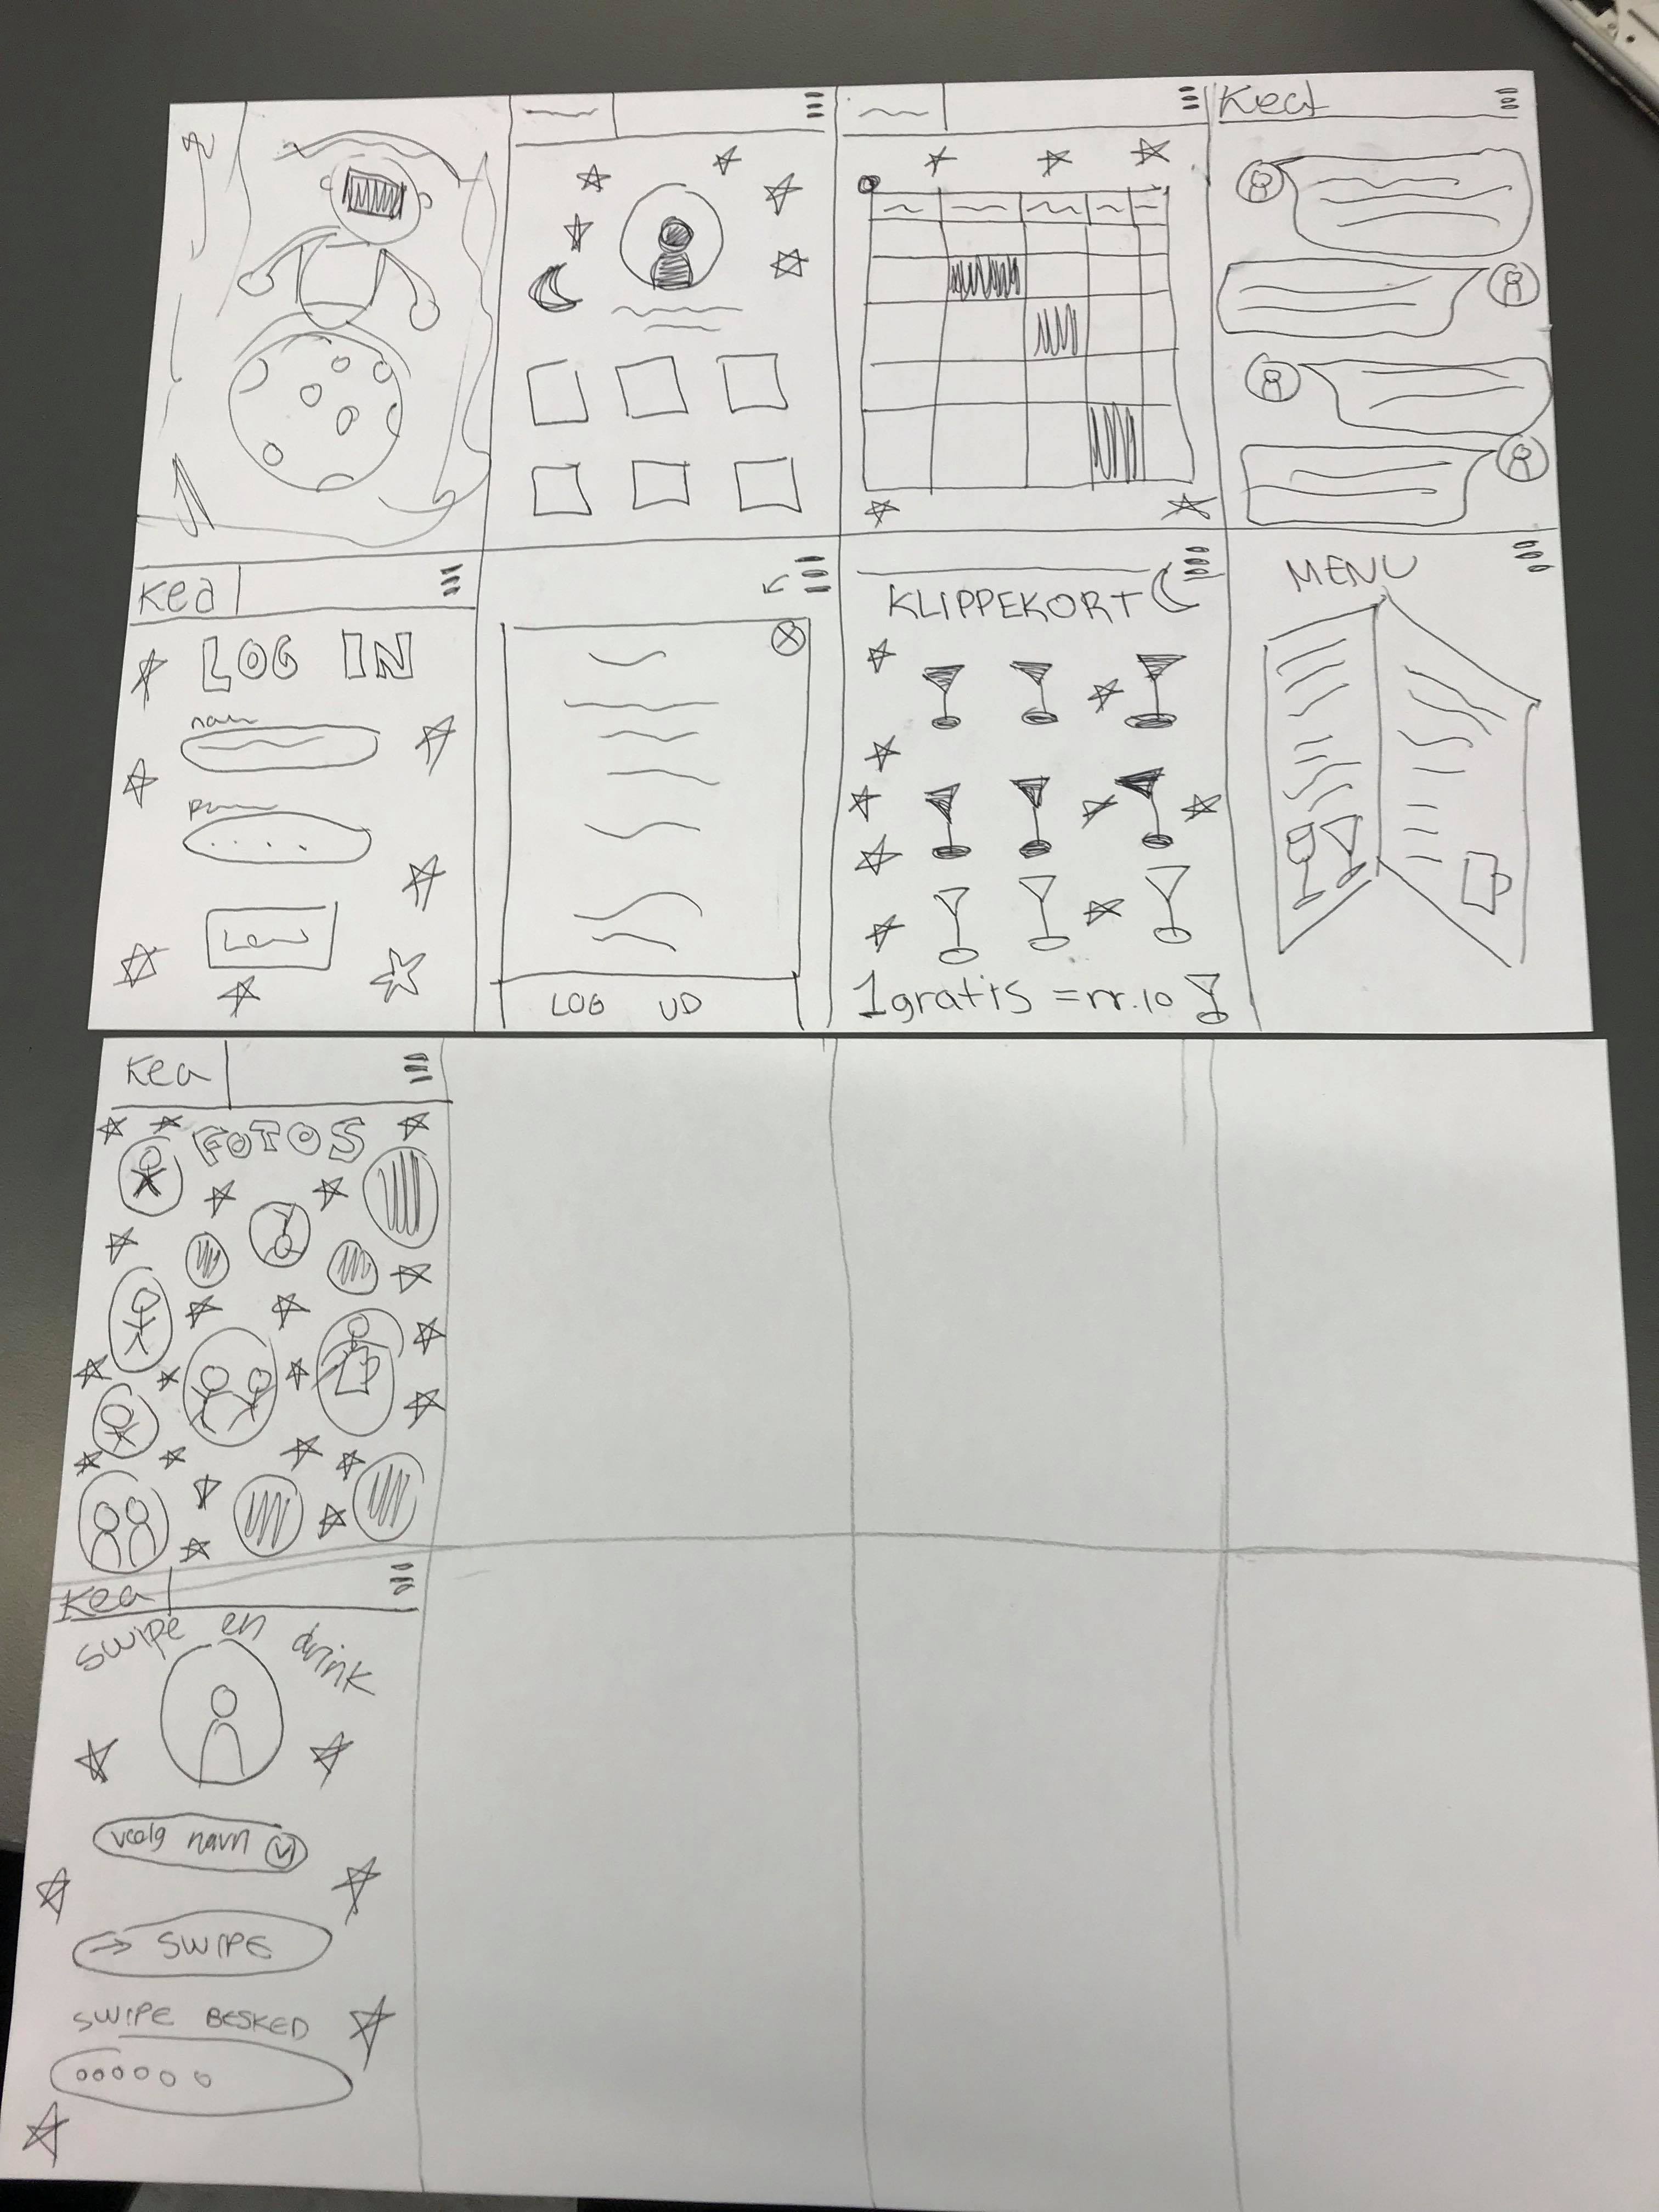 Kea
Kea
LOG IN
LOG UD
KLIPPEKORT
1 gratis = nr. 10
MENU
Kea
FOTOS
Kea
swipe en drink
vælg navn
→ SWIPE
SWIPE BESKED